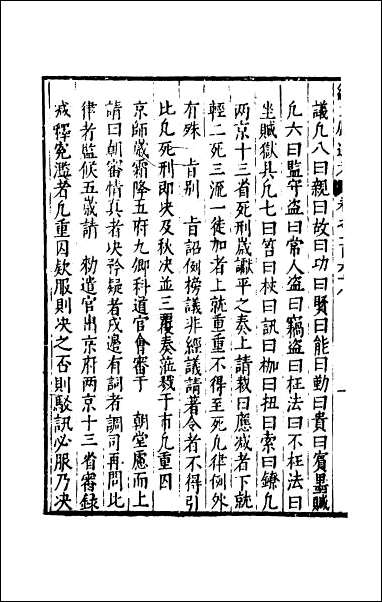 議凡八曰親曰故曰功曰賢曰能曰勤曰貴曰賔墨贓
凡六曰監守盜曰常人盜曰竊盜曰枉法曰不枉法曰
坐贓獄具凡七曰笞曰杖曰訊曰枷曰扭曰索曰鐐凡
兩京十三省死刑歲讞平之奏上請裁曰應減者下就
輕二死三流一徒加者上就重重不得至死凡律例外
有殊 旨别 旨詔例榜議非經議請著令者不得引
比凡死刑即決及秋決並三覆奏涖戮于市凡重囚
京師歲霜降五府九卿科道官會審于 朝堂慮而上
請曰朝審情真者決矜疑者戍邊有詞者調司再問比
律者監候五歲請 勑遣官出京府兩京十三省審録
戒釋寃濫者凡重囚欵服則決之否則駁訊必服乃決